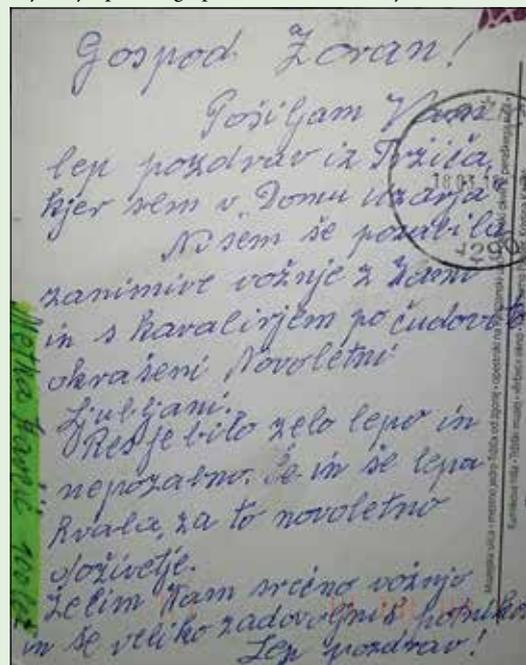 Gospod Zoran!
Pošiljam Vam
lep pozdrav iz Tržiča,
kjer sem v Domu
Nisem še pozabila
zanimive vožnje z Vami
in s kavalirjem po čudovito
okrašeni Novoletni
Ljubljani.
Res je bilo zelo lepo in
nepozabno. Še in še lepa
hvala, za to novoletno
doživetje.
Želim Vam srečno vožnjo
in še veliko zadovoljnih potnikov
Lep pozdrav!
Metka
18 03
4290